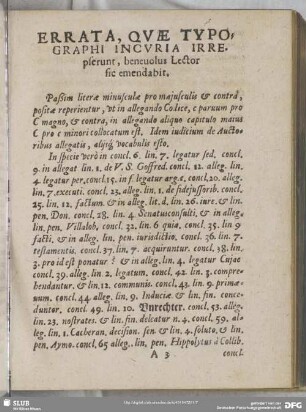 ERRATA, QVÆ TYPO-
GRAPHI INCVRIA IRRE-
pserunt, benevolus Lector
sic emendabit.
Passim literæ minusculæ pro majusculis & contrà,
positæ reperientur, ut in allegando Codice, c parvum pro
C magno, & contra, in allegando aliquo capitulo maius
C pro c minori collocatum est. Idem iudicium de Aucto-
ribus allegatis, alijsq́; vocabulis esto.
In specie verò in concl. 6. lin. 7. legatur sed. concl.
9. in allegat lin. 1. de V. S. Goffred. concl. 12. alleg. lin.
4. legatur per. concl. 15. in f. legatur arg. c, concl. 20. alleg.
lin. 7. executi. concl. 23. alleg. lin. 1. de fidejussorib. concl.
25. lin. 12. factum. & in alleg. lit. d. lin. 26. iure. & lin.
pen. Don. concl. 28. lin. 4. Senatusconsulti, & in alleg.
lin. pen. Villalob. concl. 32. lin. 6 quia. concl. 35. lin 9
facti, & in alleg. lin. pen. iurisdictio, concl. 36. lin. 7.
testamentù. concl. 37. lin. 7. acquirantur. concl. 38. lin.
3. pro id est ponatur ? & in alleg. lin. 4. legatur Cujac
concl. 39. alleg. lin. 2. legatum. concl. 42. lin. 3. compre-
hendantur, & lin. 12. communis. concl. 43. lin. 9. primæ-
uum. concl. 44. alleg. lin. 9. Induciæ & lin. fin. conce-
duntur. concl. 49. lin. 20. Vnrechter. concl. 53. alleg.
lin. 23. nostrates. & lin. fin. deleatur n. 4. concl. 59. al-
leg. lin. 1. Cacheran, decision. sen & lin. 4. soluto, & lin.
pen, Aymo. concl. 65 alleg. lin, pen, Hippolytus à Collib.
A 3 concl.
SLUB
Wir führen Wissen.
DFG